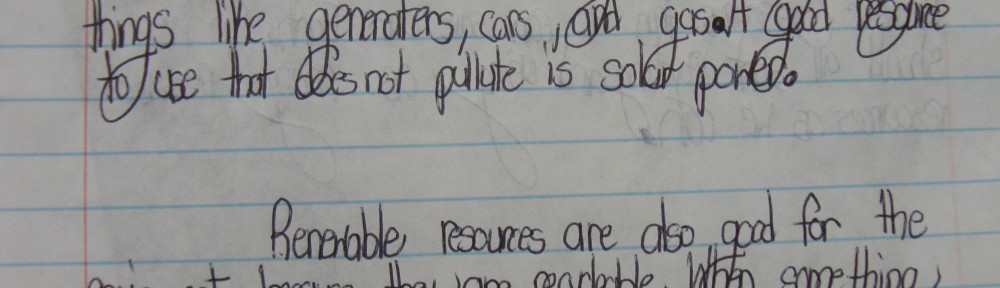 things like generaters, cars, and gas. A good resource
to use that does not pullute is solar power.
Renewable resources are also good for the
because they are When something